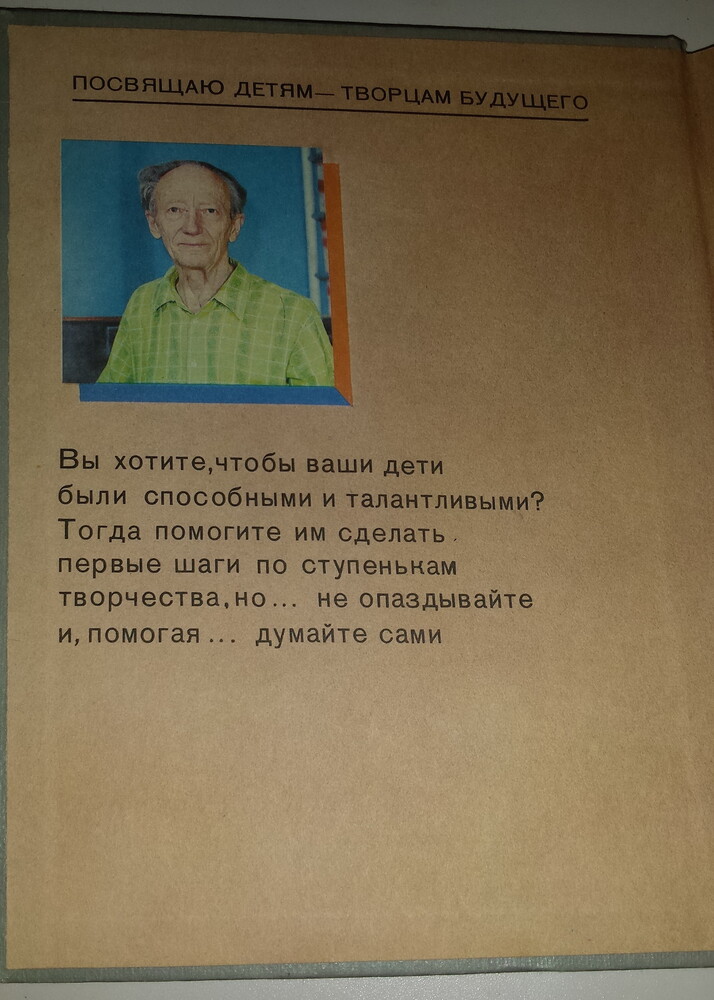 ПОСВЯЩАЮ ДЕТЯМ — ТВОРЦАМ БУДУЩЕГО
Вы хотите, чтобы ваши дети
были способными и талантливыми?
Тогда помогите им сделать
первые шаги по ступенькам
творчества, но... не опаздывайте
и, помогая ... думайте сами